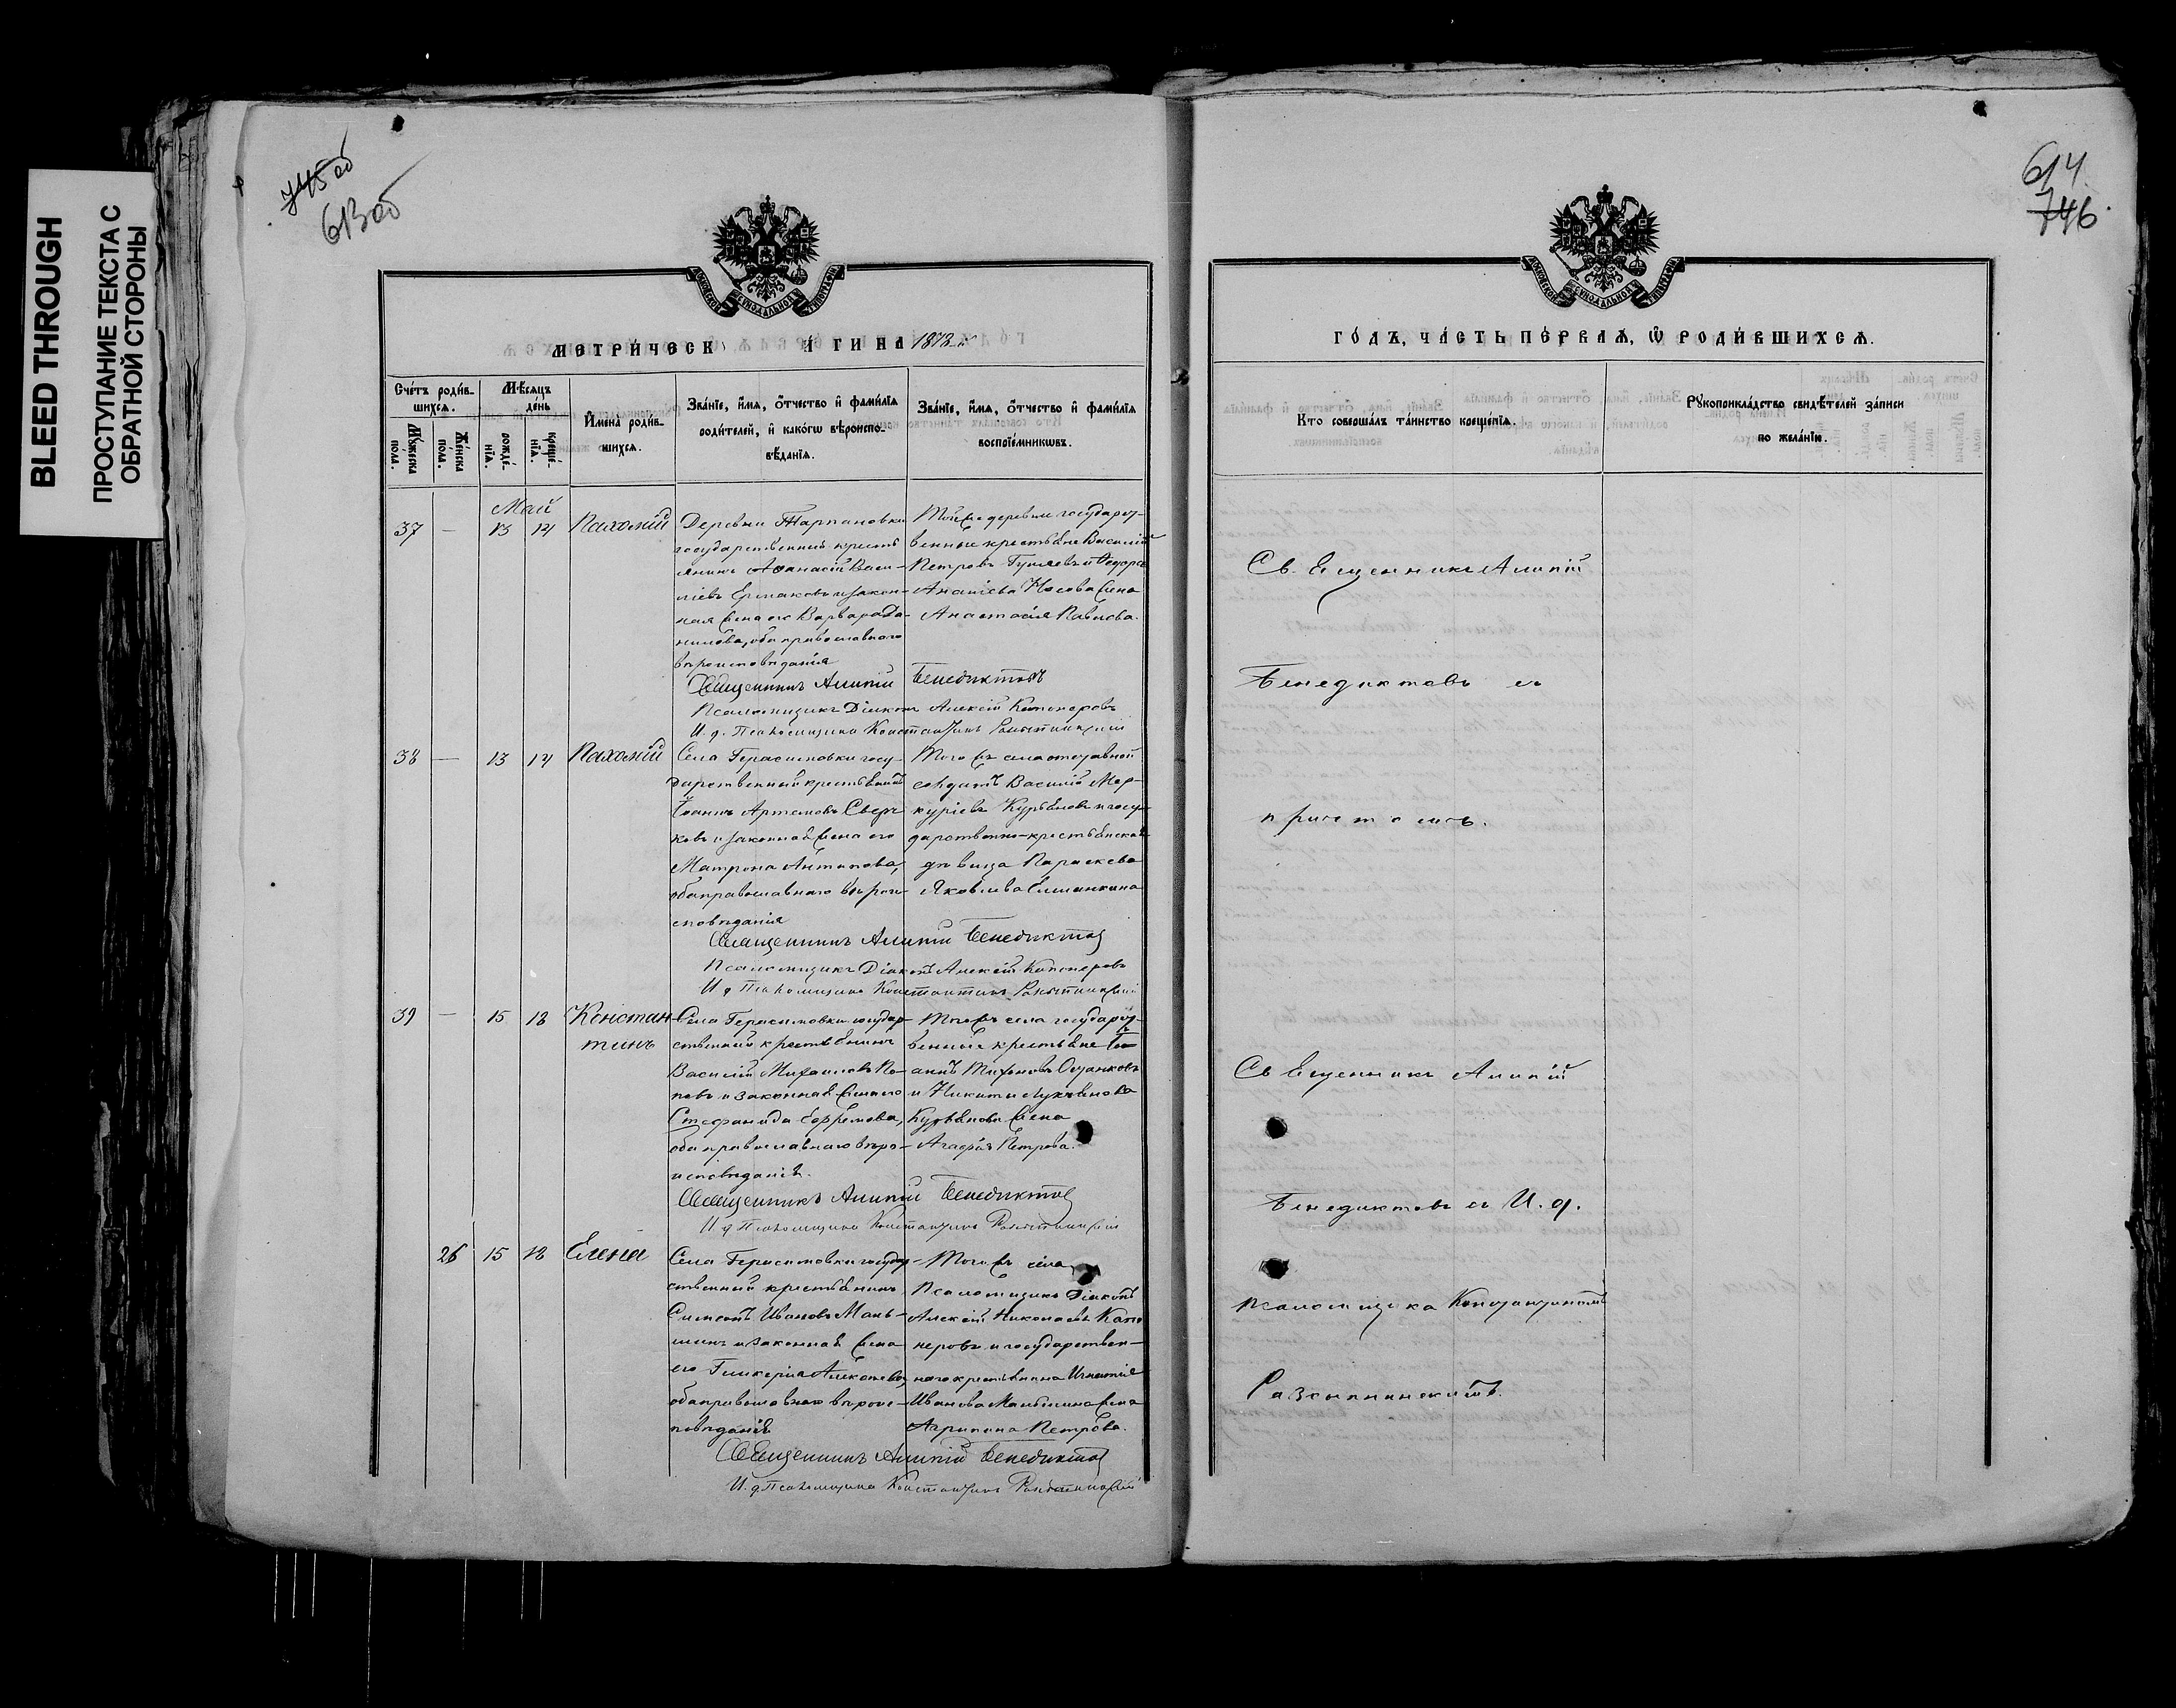 BLEED THROUGH
ПРОСТУПАНИЕ ТЕКСТА С
ОБРАТНОЙ СТОРОНЫ
745об
613об
МОСКОВСКОЙ СѴНОДАЛЬНОЙ ТИПОГРАФІИ
МЕТРИ́ЧЕСК И́ГИ НА 1878й
Сче́тъ роди́в-
шихсѧ.
Мѣ́сѧцъ
де́нь
Мꙋ́жеска
пола.
Же́нска
пола.
рожде́-
нїѧ.
креще́-
нїѧ.
И҆мена̀ роди́в-
шихсѧ.
Зва́нїе, и҆́мѧ, ѻ҆́тчество и҆ фами́лїѧ
роди́телей, и҆ како́гѡ вѣроиспо-
вѣ́данїѧ.
Зва́нїе, и҆́мѧ, ѻ҆́тчество и҆ фами́лїѧ
воспрїе́мникѡвъ.
Май
37 — 13 14 Пахомій
Деревни Тарпановки
государственный кресть
янинъ Аѳанасій Васи-
ліевъ Ермаковъ и закон-
ная жена его Варвара Да-
нилова, оба православнаго
вѣроисповѣданія
Той же деревни государст-
венные крестьяне Василій
Петровъ Гуляевъ и Ѳедора
Ананіева Носова жена
Анастасія Павлова.
Священникъ Алипій Бенедиктовъ
Псаломщикъ Діаконъ Алексій Канонеровъ
И. д. Псаломщика Константинъ
38 — 13 14 Пахомій
Села Герасимовки госу-
дарственный крестьянинъ
Іоаннъ Артемовъ Свер-
ковъ и законная жена его
Матрона Антипова,
оба православнаго вѣрои-
сповѣданія
Того же села отставной
солдатъ Василій Мер-
куріевъ Курбановъ и госу-
дарственно-крестьянская
дѣвица Параскева
Яковлева
Священникъ Алипій Бенедиктовъ
Псаломщикъ Діаконъ Алексій Канонеровъ
И д Псаломщика Константинъ
39 — 15 18 Констан-
тинъ
Села Герасимовки государ-
ственный крестьянинъ
Василій Михаиловъ По-
повъ и законная жена его
Стефанида Ефремова,
оба православнаго вѣро-
исповѣданія.
Того же села государст-
венные крестьяне Іо-
аннъ Тихоновъ
и Никиты Лукьянова
Курбанова жена
Агафія Петрова.
Священникъ Алипій Бенедиктовъ
И д Псаломщика Константинъ
26 15 18 Елена
Села Герасимовки государ-
ственный крестьянинъ
Симеонъ Ивановъ Мань-
шинъ и законная жена
его Гликерія Алексѣева,
оба православнаго вѣроис-
повѣданія
Того же села
Псаломщикъ Діаконъ
Алексій Николаевъ Кано
неровъ и государствен-
наго крестьянина Игнатія
Иванова Маньшина жена
Агрипина Петрова.
Священникъ Алипій Бенедиктовъ
И. д Псаломщика Константинъ
614
746
МОСКОВСКОЙ СѴНОДАЛЬНОЙ ТИПОГРАФІИ
ГО́ДЪ, ЧА́СТЬ ПЕ́РВАѦ, Ѡ҆ РОДИ́ВШИХСѦ.
Кто̀ соверша́лъ та́инство креще́нїѧ.
Рꙋкоприкла́дство свидѣ́телей за́писи
по жела́нїю.
Священникъ Алипій
Бенедиктовъ съ
причтомъ.
Священникъ Алипій
Бенедиктовъ съ И. д.
псаломщика Константиномъ
Разсыпинскимъ.